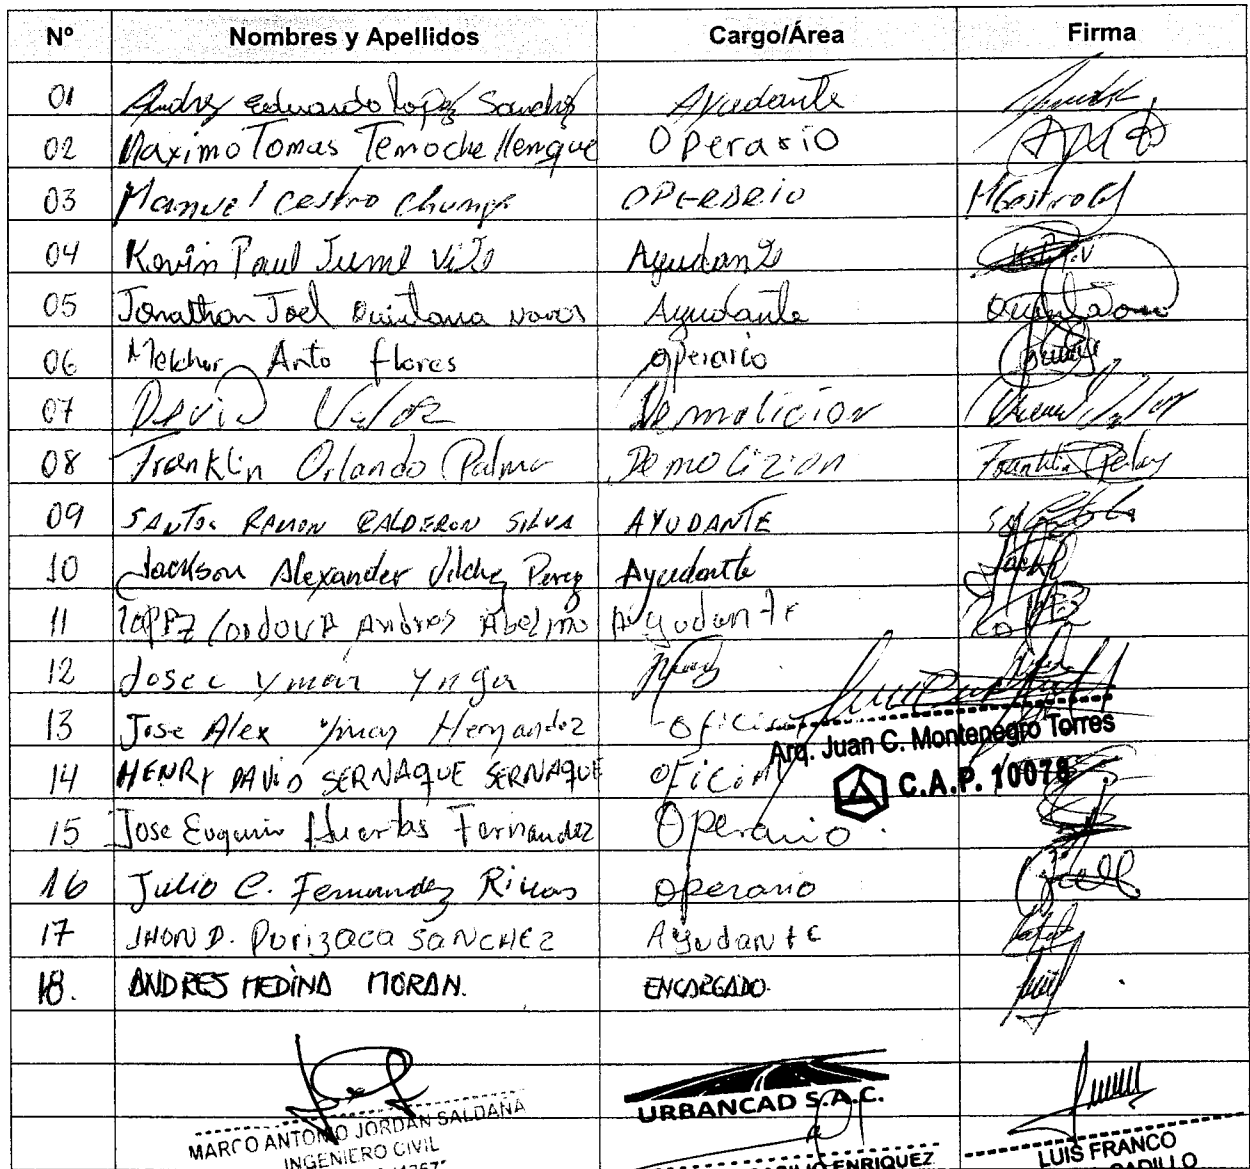 Nº Nombres y Apellidos Cargo/Área Firma
01 Andres Eduardo Lopez Sanchez Ayudante
02 Maximo Tomas Temoche Llenque Operario
03 Manuel Castro Chunga Operario M Castro Ch
04 Kevin Paul Jume Ayudante
05 Jonathan Joel Quintana Ayudante Quintana
06 Melchor Anto flores operario
07 David Valdez Demolicion
08 Franklin Orlando Palma Demolizion Franklin
09 SANTOS RAMON CALDERON SILVA AYUDANTE
10 Jackson Alexander Vilchez Perez Ayudante
11 LOPEZ CORDOVA ANDRES Abelino Ayudante
12 Jose Ymán Ynga
13 Jose Alex Yman Hernandez
Arq. Juan C. Montenegro Torres
14 HENRY DAVID SERNAQUE SERNAQUE
C.A.P. 10078
15 Jose Eugenio Huertas Fernandez Operario
16 Julio C. Fernandez Rivas operario
17 JHON D. Purizaca SANCHEZ Ayudante
18. ANDRES MEDINA MORAN. ENCARGADO.
URBANCAD S.A.C.
MARCO ANTONIO JORDAN SALDAÑA
INGENIERO CIVIL
ENRIQUEZ
LUIS FRANCO